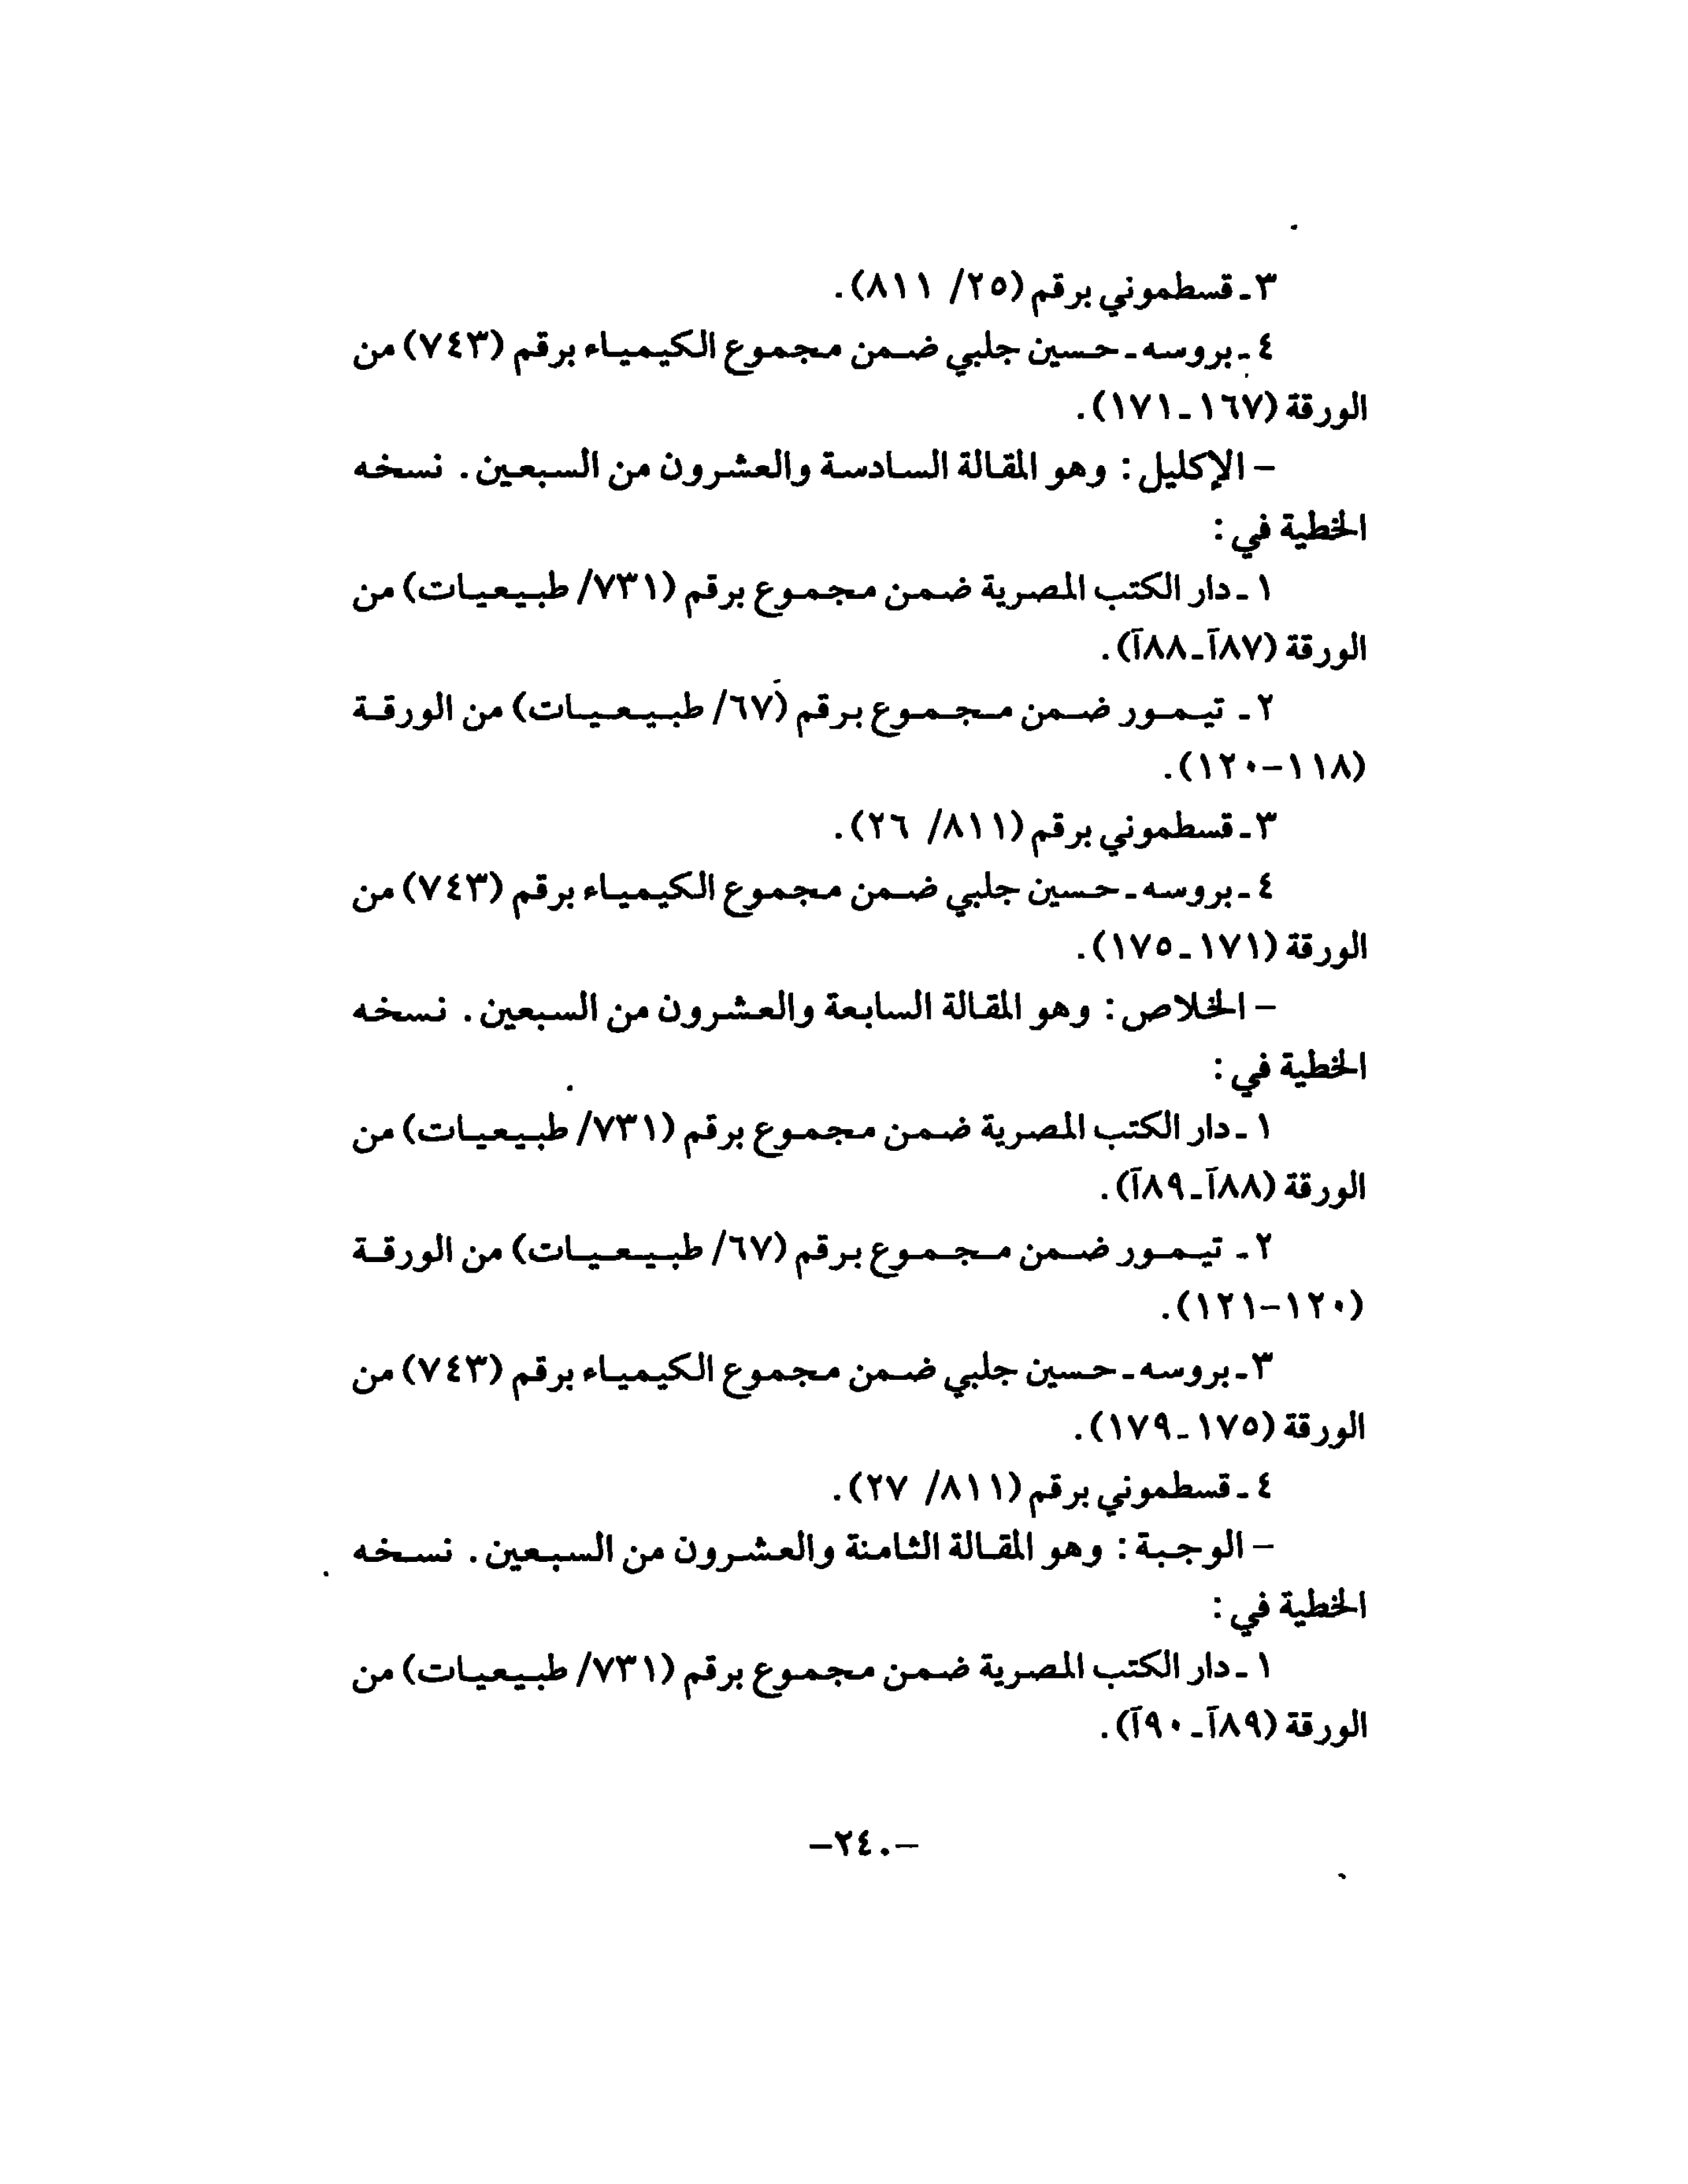 ٣ـ قسطموني برقم (٢٥/ ٨١١).
٤ ـ بروسه ـ حسين جلبي ضمن مجموع الكيمياء برقم (٧٤٣) من
الورقة (١٦٧ـ١٧١).
– الإكليل: وهو المقالة السادسة والعشرون من السبعين. نسخه
الخطية في:
١ ـ دار الكتب المصرية ضمن مجموع برقم (٧٣١/ طبيعيات) من
الورقة (٨٧آـ٨٨آ).
٢ ـ تيمور ضمن مجموع برقم (٦٧/ طبيعيات) من الورقة
(١١٨–١٢٠).
٣ـ قسطموني برقم (٨١١/ ٢٦).
٤ ـ بروسه ـ حسين جلبي ضمن مجموع الكيمياء برقم (٧٤٣) من
الورقة (١٧١ـ١٧٥).
– الخلاص: وهو المقالة السابعة والعشرون من السبعين. نسخه
الخطية في:
١ ـ دار الكتب المصرية ضمن مجموع برقم (٧٣١/ طبيعيات) من
الورقة (٨٨آـ٨٩آ).
٢ ـ تيمور ضمن مجموع برقم (٦٧/ طبيعيات) من الورقة
(١٢٠–١٢١).
٣ـ بروسه ـ حسين جلبي ضمن مجموع الكيمياء برقم (٧٤٣) من
الورقة (١٧٥ـ١٧٩).
٤ ـ قسطموني برقم (٨١١/ ٢٧).
– الوجبة: وهو المقالة الثامنة والعشرون من السبعين. نسخه
الخطية في:
١ ـ دار الكتب المصرية ضمن مجموع برقم (٧٣١/ طبيعيات) من
الورقة (٨٩آـ٩٠آ).
–٢٤٠–